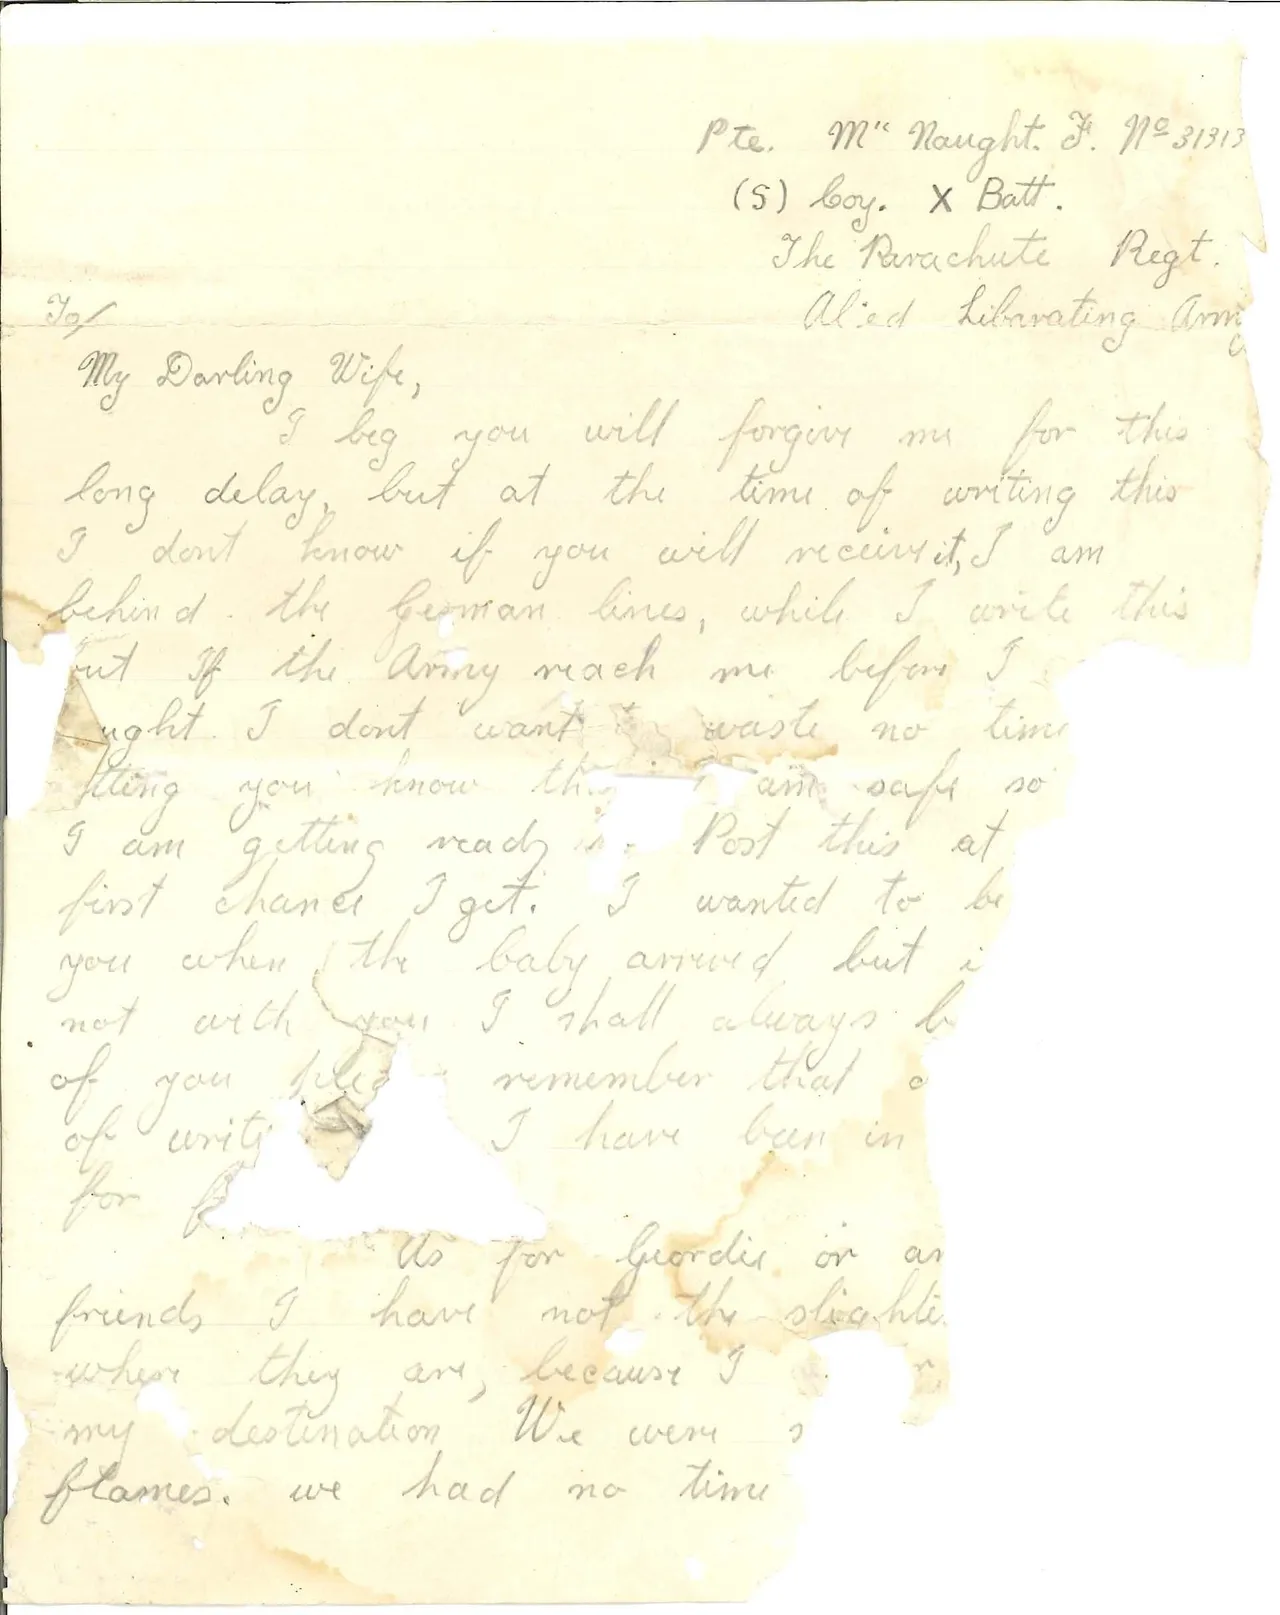 Pte. Mc Naught. F. No 31313
(S) Coy. X Batt.
The Parachute Regt.
Al:ed Libarating Army
To/
My Darling Wife,
I beg you will forgive me for this
long delay, but at the time of writing this
I dont know if you will receive it, I am
behind the German lines, while I write this
but If the Army reach me before I
ught I dont want waste no time
tting you know I am safe so
I am getting ready Post this at
first chance I get. I wanted to be
you when the baby arrived but i
not with you I shall always b
of you remember that
of writi I have been in
for
As for Geordie or an
friends I have not the slighte
where they are, because I
my destination We were s
flames. we had no time